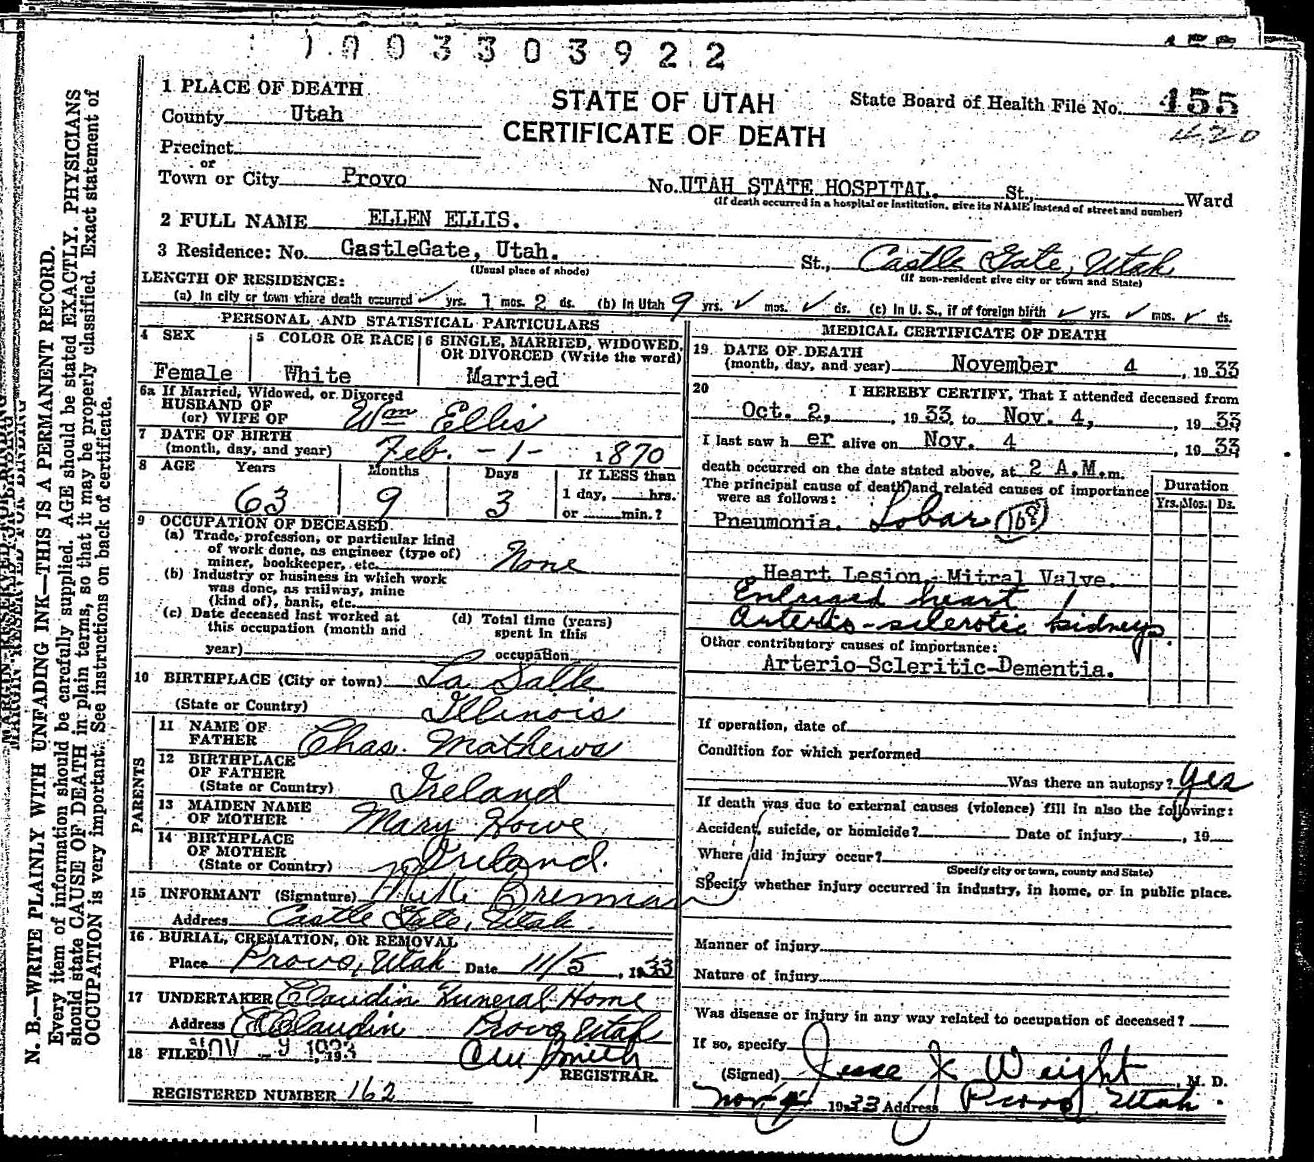 1 0 0 3 3 0 3 9 2 2
STATE OF UTAH
CERTIFICATE OF DEATH
State Board of Health File No. 455
420
1 PLACE OF DEATH
County Utah
Precinct
or
Town or City Provo No. UTAH STATE HOSPITAL. St., Ward
(If death occurred in a hospital or institution, give its NAME instead of street and number)
2 FULL NAME ELLEN ELLIS.
3 Residence: No. GastleGate, Utah. St., Castle Gate, Utah
(Usual place of abode) (If non-resident give city or town and State)
LENGTH OF RESIDENCE:
(a) In city or town where death occurred ✓ yrs. 1 mos. 2 ds. (b) In Utah 9 yrs. ✓ mos. ✓ ds. (c) In U. S., if of foreign birth ✓ yrs. ✓ mos. ✓ ds.
PERSONAL AND STATISTICAL PARTICULARS
4 SEX
Female
5 COLOR OR RACE
White
6 SINGLE, MARRIED, WIDOWED,
OR DIVORCED (Write the word)
Married
6a If Married, Widowed, or Divorced
HUSBAND OF
(or) WIFE OF Wm Ellis
7 DATE OF BIRTH
(month, day, and year) Feb. - 1 - 1870
8 AGE Years Months Days If LESS than
63 9 3 1 day, hrs.
or min.?
9 OCCUPATION OF DECEASED.
(a) Trade, profession, or particular kind
of work done, as engineer (type of)
miner, bookkeeper, etc. None
(b) Industry or business in which work
was done, as railway, mine
(kind of), bank, etc.
(c) Date deceased last worked at
this occupation (month and
year)
(d) Total time (years)
spent in this
occupation
10 BIRTHPLACE (City or town) La Salle
(State or Country) Illinois
PARENTS
11 NAME OF
FATHER Chas. Mathews
12 BIRTHPLACE
OF FATHER
(State or Country) Ireland
13 MAIDEN NAME
OF MOTHER Mary Howe
14 BIRTHPLACE
OF MOTHER
(State or Country) Ireland.
15 INFORMANT (Signature) Mike Brennan
Address Castle Gate, Utah.
16 BURIAL, CREMATION, OR REMOVAL
Place Provo, Utah Date 11/5, 1933
17 UNDERTAKER Claudin Funeral Home
Address Claudin Provo Utah
18 FILED NOV 9 1933
Smith
REGISTRAR.
REGISTERED NUMBER 162
MEDICAL CERTIFICATE OF DEATH
19 DATE OF DEATH
(month, day, and year) November 4, 1933
20 I HEREBY CERTIFY, That I attended deceased from
Oct. 2, 1933, to Nov. 4, 1933
I last saw h er alive on Nov. 4, 1933
death occurred on the date stated above, at 2 A.M.m.
The principal cause of death and related causes of importance
were as follows:
Duration
Yrs. Mos. Ds.
Pneumonia. Lobar 108
Heart Lesion,-Mitral Valve.
Enlrged heart
Arterio-sclerotic kidneys.
Other contributory causes of importance:
Arterio-Scleritic-Dementia.
If operation, date of
Condition for which performed
Was there an autopsy? yes
If death was due to external causes (violence) fill in also the following:
Accident, suicide, or homicide? Date of injury, 19
Where did injury occur?
(Specify city or town, county and State)
Specify whether injury occurred in industry, in home, or in public place.
Manner of injury
Nature of injury
Was disease or injury in any way related to occupation of deceased?
If so, specify
(Signed) Jesse J Weight, M. D.
Nov 4 1933 Address Provo Utah.
MARGIN RESERVED FOR BINDING
N. B.—WRITE PLAINLY WITH UNFADING INK—THIS IS A PERMANENT RECORD.
Every item of information should be carefully supplied. AGE should be stated EXACTLY. PHYSICIANS
should state CAUSE OF DEATH in plain terms, so that it may be properly classified. Exact statement of
OCCUPATION is very important. See instructions on back of certificate.